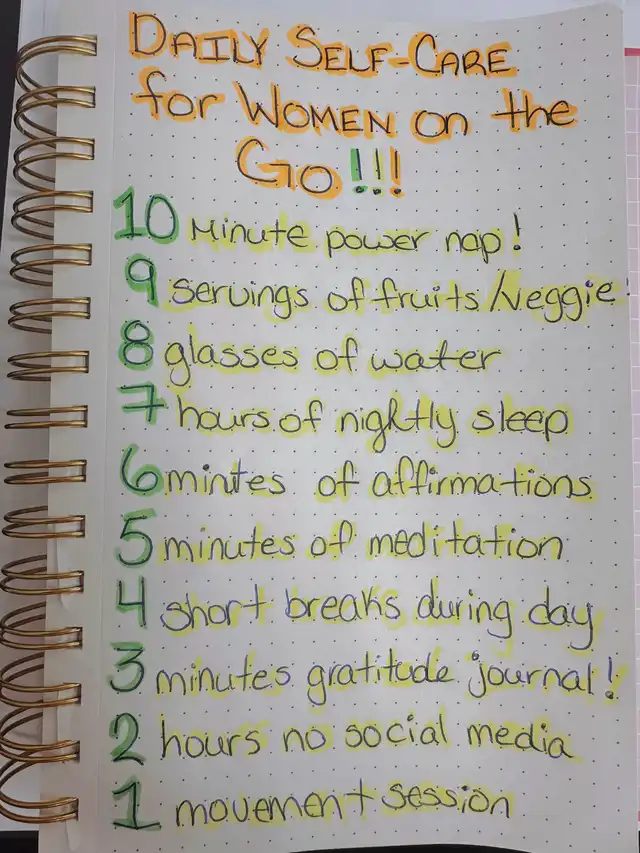 DAILY SELF-CARE
for WOMEN on the
GO!!!
10 Minute power nap!
9 servings of fruits/Veggie
8 glasses of water
7 hours of nightly sleep
6 minutes of affirmations
5 minutes of meditation
4 short breaks during day
3 minutes gratitude journal!
2 hours no social media
1 movement session